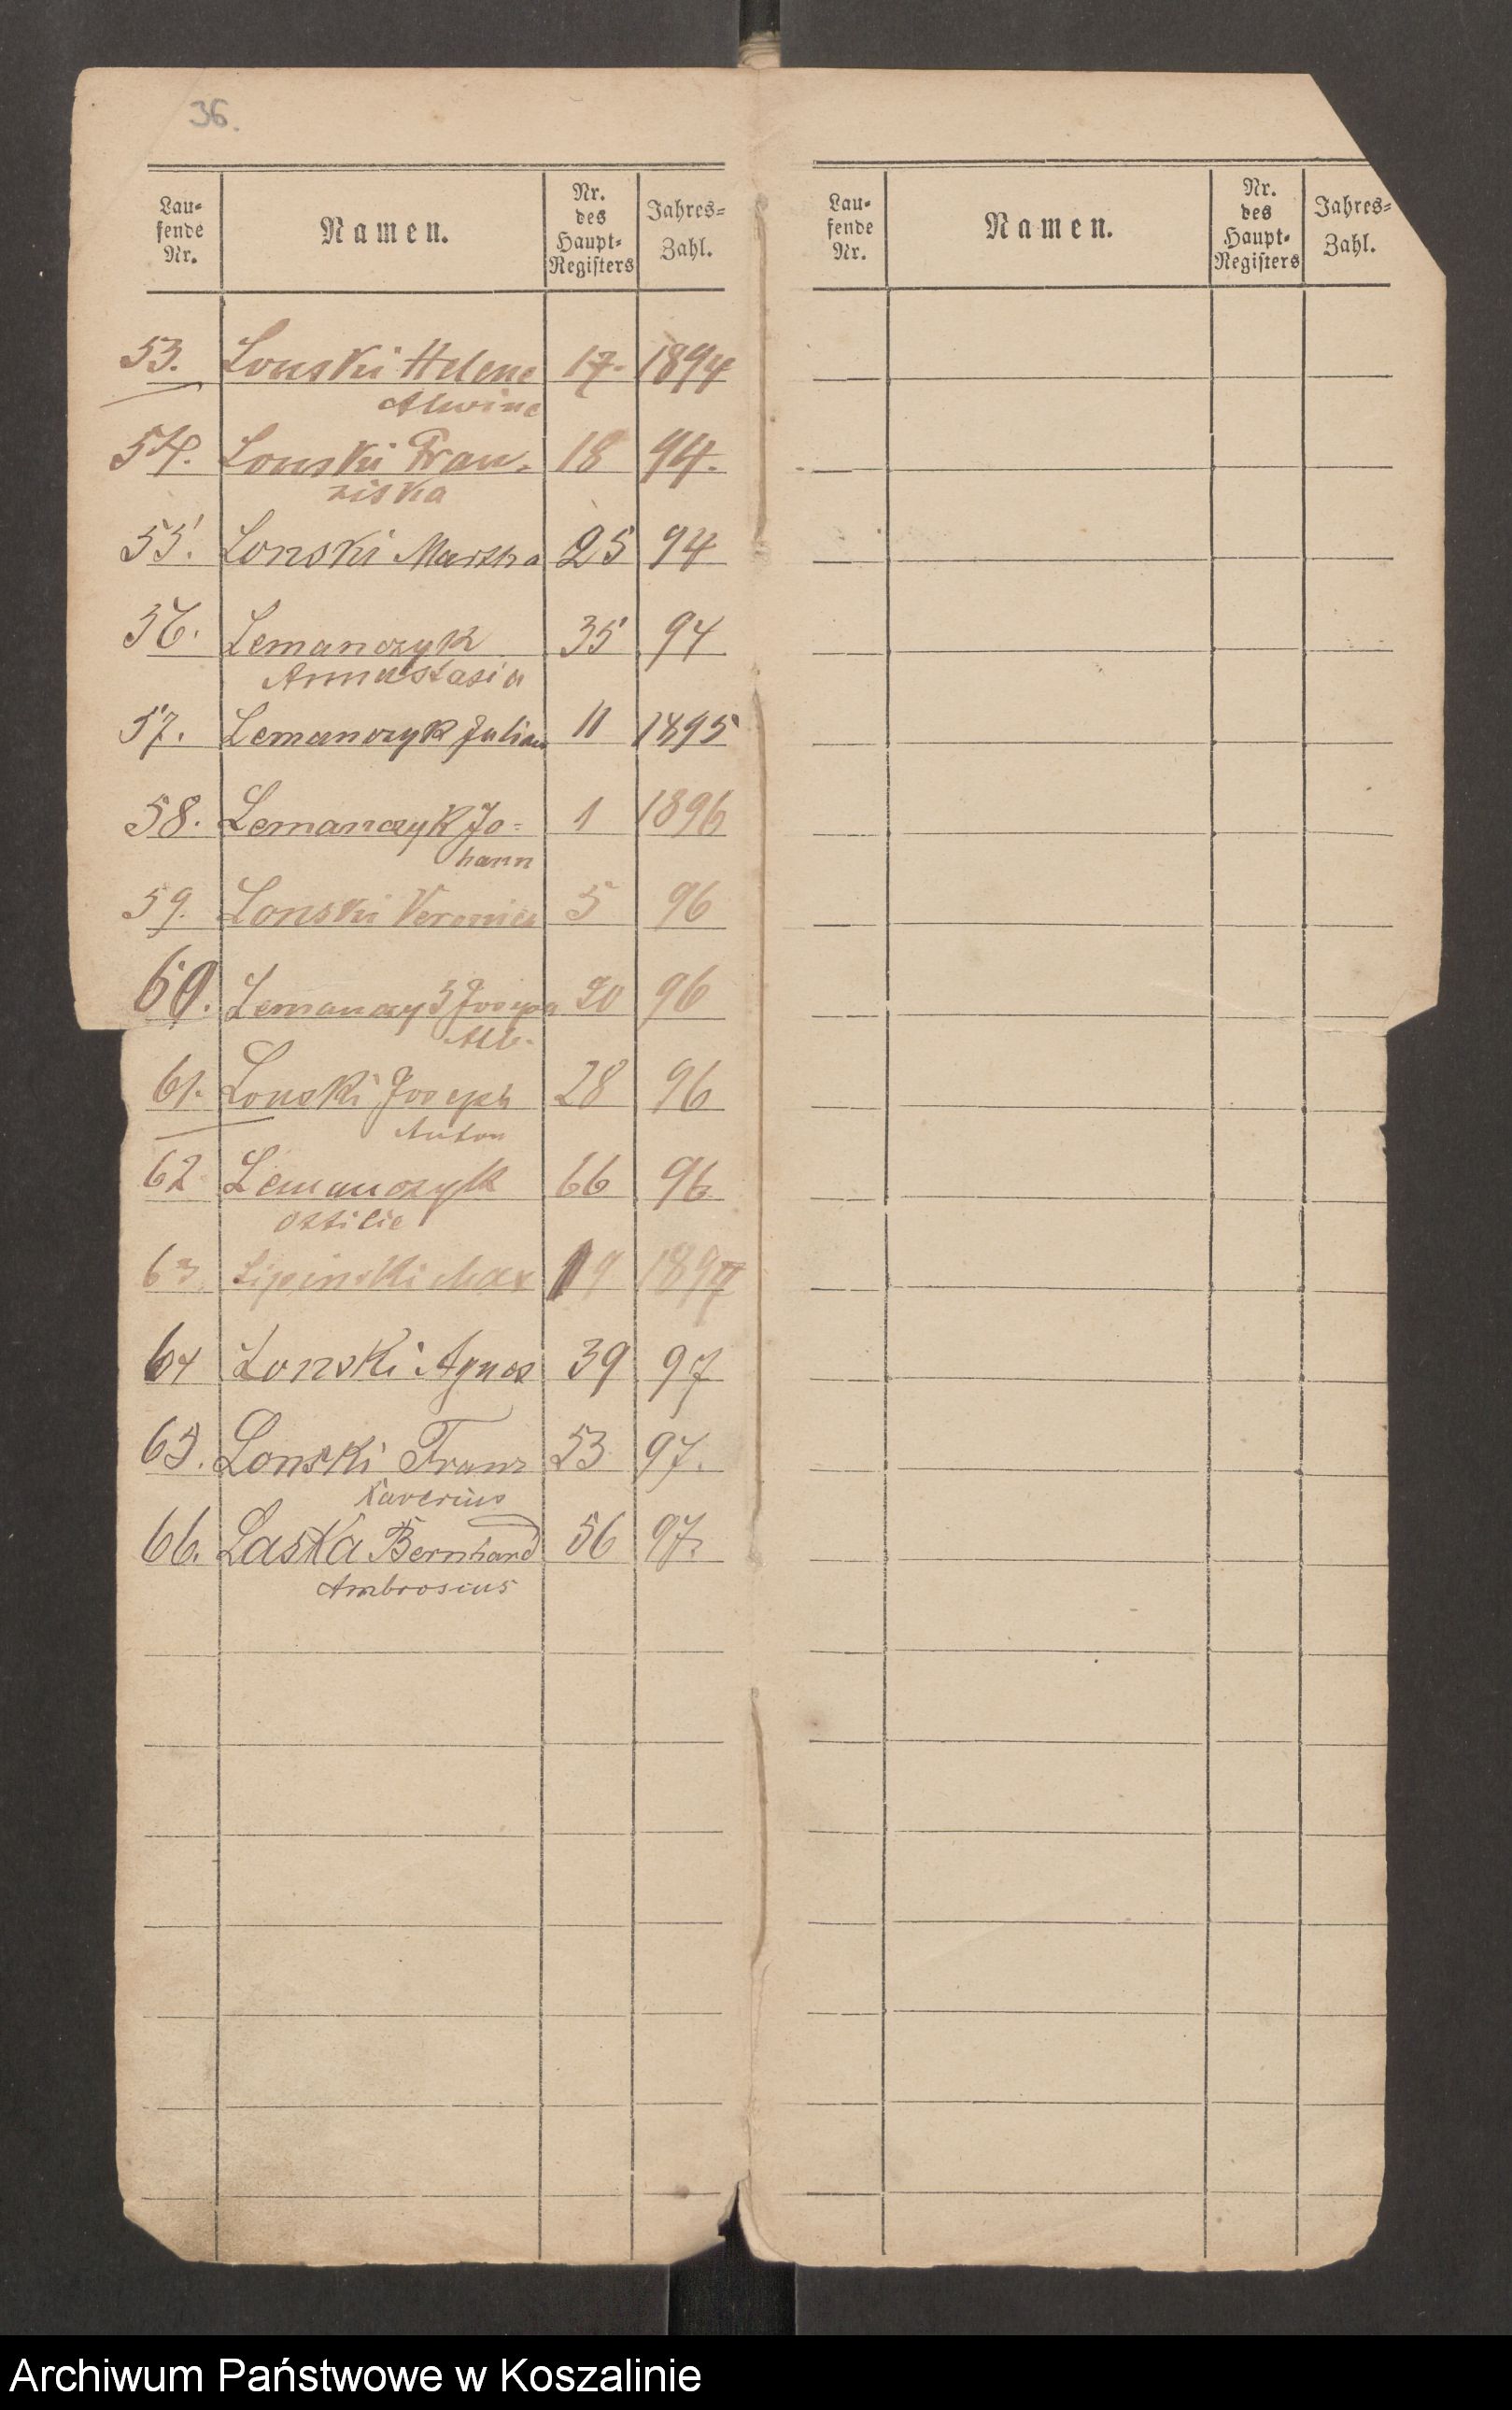 36.
Lau-
fende
Nr.
Namen.
Nr.
des
Haupt-
Registers
Jahres-
Zahl.
Lau-
fende
Nr.
Namen.
Nr.
des
Haupt-
Registers
Jahres-
Zahl.
53. Lonski Helene 17. 1894
Alwine
54. Lonski Fran- 18 94.
ziska
55. Lonski Martha 25 94
56. Lemanczyk 35 94
Annastasia
57. Lemanczyk Julian 11 1895
58. Lemanczyk Jo= 1 1896
hann
59. Lonski Veronica 5 96
60. Joseph 20 96
Alb.
61. Lonski Joseph 28 96
Anton
62 Lemanczyk 66 96
Ottilie
63. Lipinski Max 19 1897
64 Lonski Agnes 39 97
65. Lonski Franz 53 97.
Xaverius
66. Laska Bernhard 56 97.
Ambrosius
Archiwum Państwowe w Koszalinie